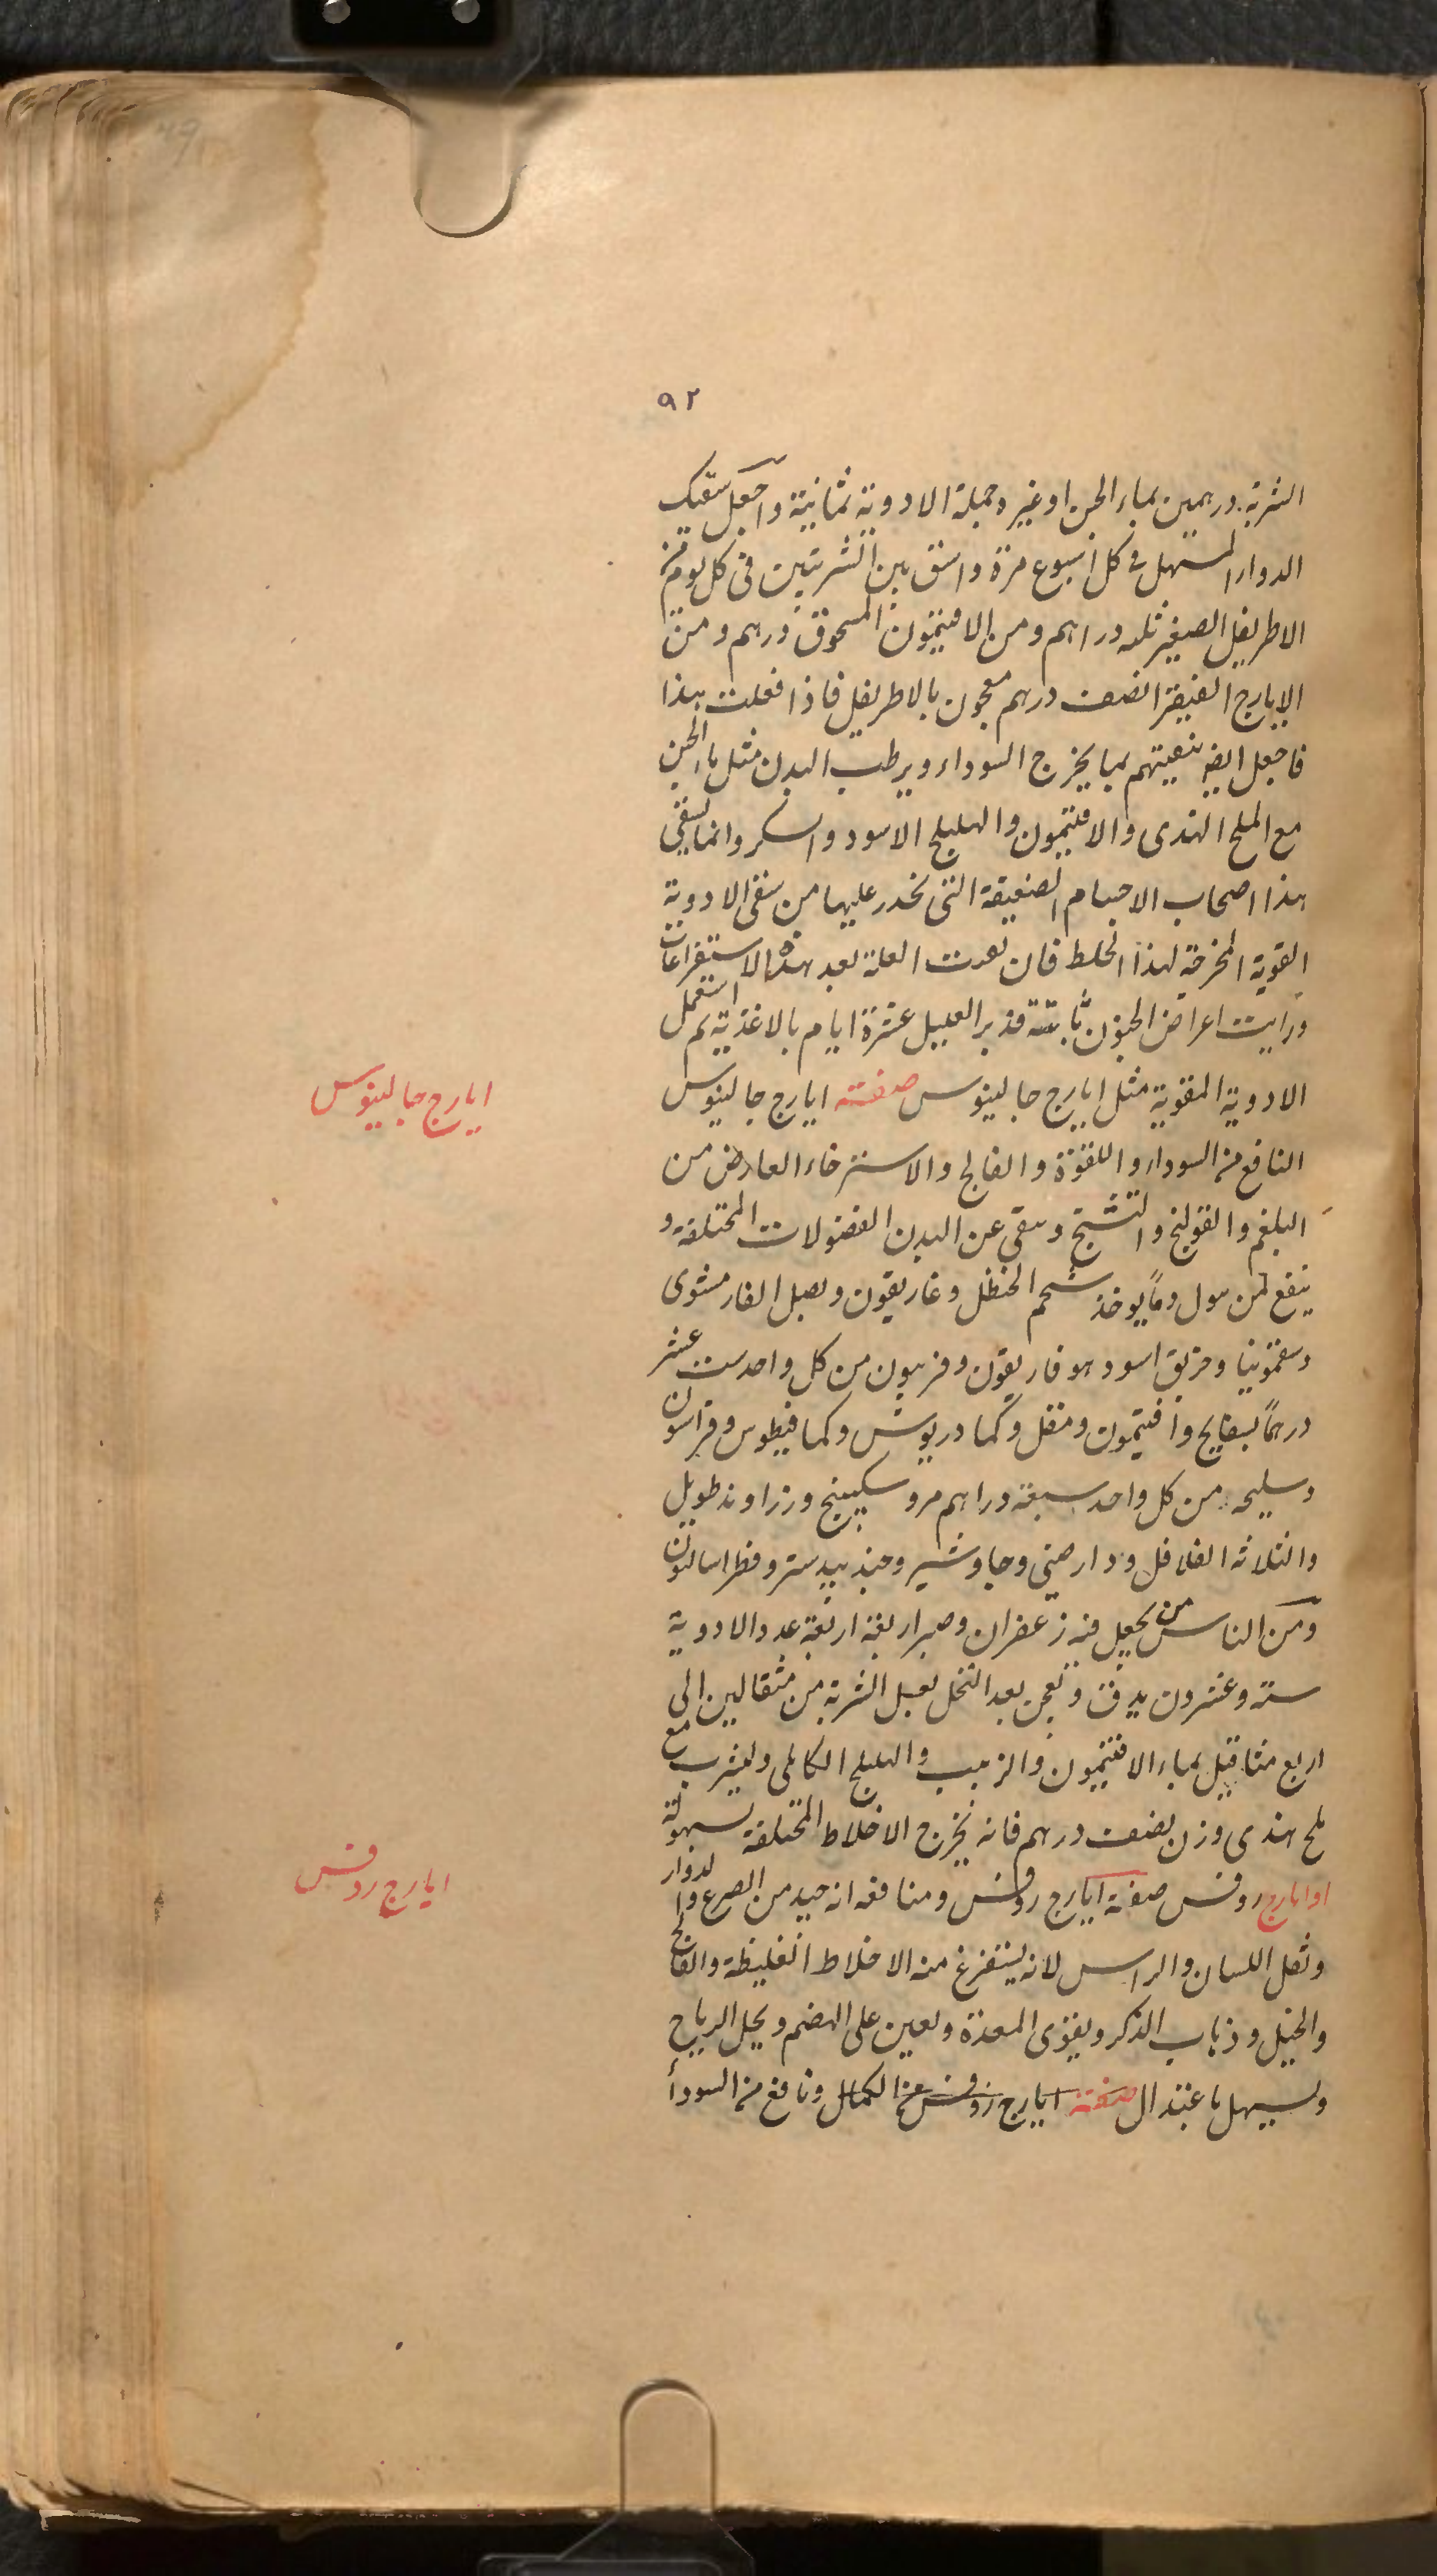 ٩٢
الشربة درهمين بماء الجبن او غيره وجملة الادوية ثمانية واجعل سقيك
الدواء المسهل في كل اسبوع مرة واسق بين الشربتين في كل يوم من
الاطريفل الصغير ثلثه دراهم ومن الافتيمون المسحوق درهم ومن
الايارج الفيقرا نصف درهم معجون بالاطريفل فاذا فعلت هذا
فاجعل ايضا تنقيتهم بما يخرج السوداء ويرطب البدن مثل ماء الجبن
مع الملح الهندى والافتيمون والهليلج الاسود والسكر وانما يسقى
هذا اصحاب الاجسام الضعيفة التى تحذر عليها من سقى الادوية
القوية المخرجة لهذا الخلط فان تعدت العلة بعد هذه الاستفراغات
ورايت اعراض الجنون ثابتة فدبر العليل عشرة ايام بالاغذية ثم استعمل
الادوية المقوية مثل ايارج جالينوس صفته ايارج جالينوس
ايارج جالينوس
النافع من السوداء واللقوة والفالج والاسترخاء العارض من
البلغم والقولنج والتشنج وينقى عن البدن الفضولات المختلفة و
ينفع لمن يبول دما يوخذ شحم الحنظل وغاريقون وبصل الفار مشوى
وسقمونيا وخربق اسود هوفاريقون وفربيون من كل واحد ست عشر
درهما بسفايج وافتيمون ومقل وكمادريوش وكمافيطوس وفراسون
وسليحه من كل واحد سبعة دراهم مر وسكبينج وزراوند طويل
والثلاثه الفلافل ودارصينى وجاوشير وجندبيدستر وفطراسالون
ومن الناس من يجعل فيه زعفران وصبر اربعة اربعة عدد الادوية
ستة وعشرون يدق ويعجن بعد النخل بعسل الشربة من مثقالين الى
اربع مثاقيل بماء الافتيمون والزبيب والهليلج الكابلى وليشرب مع
ملح هندى وزن نصف درهم فانه يخرج الاخلاط المختلفة بسهولة
او ايارج روفس صفة ايارج روفس ومنافعه انه جيد من الصرع والدوار
ايارج روفس
وثقل اللسان والراس لانه يستفرغ منه الاخلاط الغليظة والفالج
والخبل وذهاب الذكر ويقوى المعدة ويعين على الهضم ويحل الرياح
ويسهل باعتدال صفته ايارج روفس الكمال ونافع من السوداء